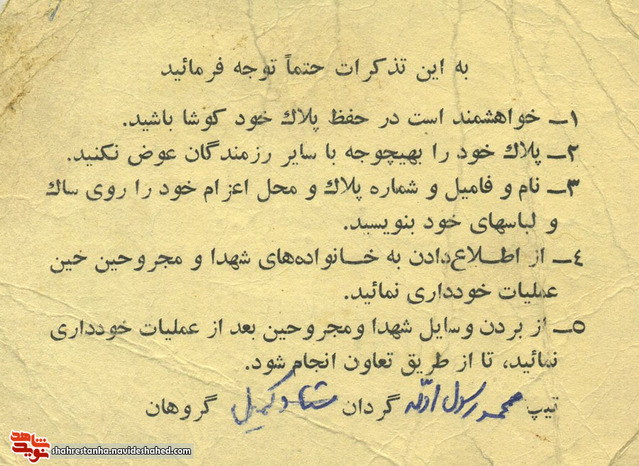 به این تذکرات حتماً توجه فرمائید
۱ــ خواهشمند است در حفظ پلاك خود کوشا باشید.
۲ــ پلاك خود را بهیچوجه با سایر رزمندگان عوض نکنید.
۳ــ نام و فامیل و شماره پلاك و محل اعزام خود را روی ساك
و لباسهای خود بنویسید.
٤ــ از اطلاع‌دادن به خانواده‌های شهدا و مجروحین خین
عملیات خودداری نمائید.
۵ــ از بردن وسایل شهدا ومجروحین بعد از عملیات خودداری
نمائید، تا از طریق تعاون انجام شود.
تیپ محمد رسول الله گردان کمیل گروهان
نوید شاهد
shahrestanha.navideshahed.com